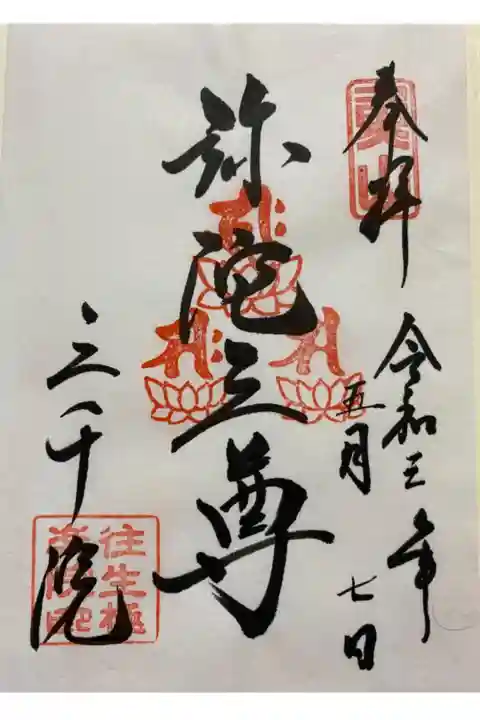 奉拝
令和三年
五月
七日
弥陀三尊
三千院
往生極
楽院印